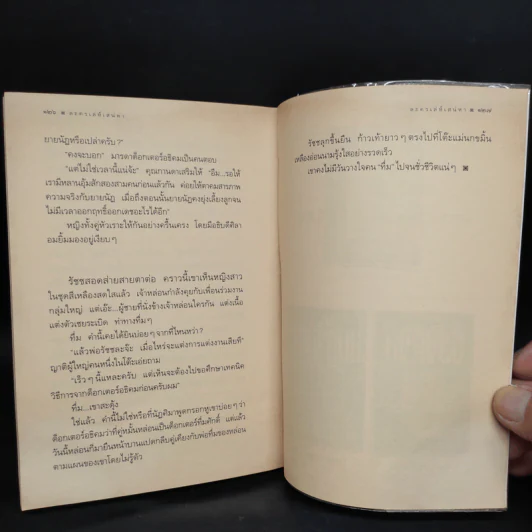 ๑๒๖ ■ มรดกเสน่หา
ยายนัฎหรือเปล่าครับ?"
"คงจะบอก" มารดาด็อกเตอร์อธิคมเป็นคนตอบ
"แต่ไม่ใช่เวลานี้แน่จ้ะ" คุณกานดาเสริมให้ "อืม...รอให้
เรามีหลานอุ้มสักสองสามคนก่อนแล้วกัน ค่อยให้ตาคมสารภาพ
ความจริงกับยายนัฎ เมื่อถึงตอนนั้นยายนัฎคงยุ่งเลี้ยงลูกจน
ไม่มีเวลาออกฤทธิ์ออกเดชอะไรได้อีก"
หญิงทั้งคู่หัวเราะให้กันอย่างครื้นเครง โดยมีอธิบดีศิลา
อมยิ้มมองอยู่เงียบๆ
รัชชสอดส่ายสายตาต่อ คราวนี้เขาเห็นหญิงสาว
ในชุดสีเหลืองสดใสแล้ว เจ้าหล่อนกำลังคุยกับเพื่อนร่วมงาน
กลุ่มใหญ่ แต่เอ๊ะ...ผู้ชายที่นั่งข้างเจ้าหล่อนใครกัน แต่งเนื้อ
แต่งตัวเชยระเบิด ท่าทางทึ่มๆ
ทึ่ม คำนี้เคยได้ยินบ่อยๆจากที่ไหนหว่า?
"แล้วพ่อรัชชละจ๊ะ เมื่อไหร่จะแต่งการแต่งงานเสียที"
ญาติผู้ใหญ่คนหนึ่งในโต๊ะเอ่ยถาม
"เร็วๆนี้แหละครับ แต่เห็นจะต้องไปขอศึกษาเทคนิค
วิธีการจากด็อกเตอร์อธิคมก่อนครับผม"
ทึ่ม...เขาสะดุ้ง
ใช่แล้ว คำนี้ไม่ใช่หรือที่นัฎศิมาพูดกรอกหูเขาบ่อยๆว่า
ด็อกเตอร์อธิคมว่าที่คู่หมั้นหล่อนเป็นด็อกเตอร์ทึ่มศักดิ์ แต่แล้ว
วันนี้หล่อนก็มายืนหน้าบานแปดกลีบคู่เคียงกับพ่อทึ่มของหล่อน
ตามแผนของเขาโดยไม่รู้ตัว
■ ๑๒๗
รัชชลุกขึ้นยืน ก้าวเท้ายาวๆตรงไปที่โต๊ะแม่นกขมิ้น
เหลืองอ่อนนามรุ้งใสอย่างรวดเร็ว
เขาคงไม่มีวันวางใจคน "ทึ่ม" ไปจนชั่วชีวิตแน่ๆ